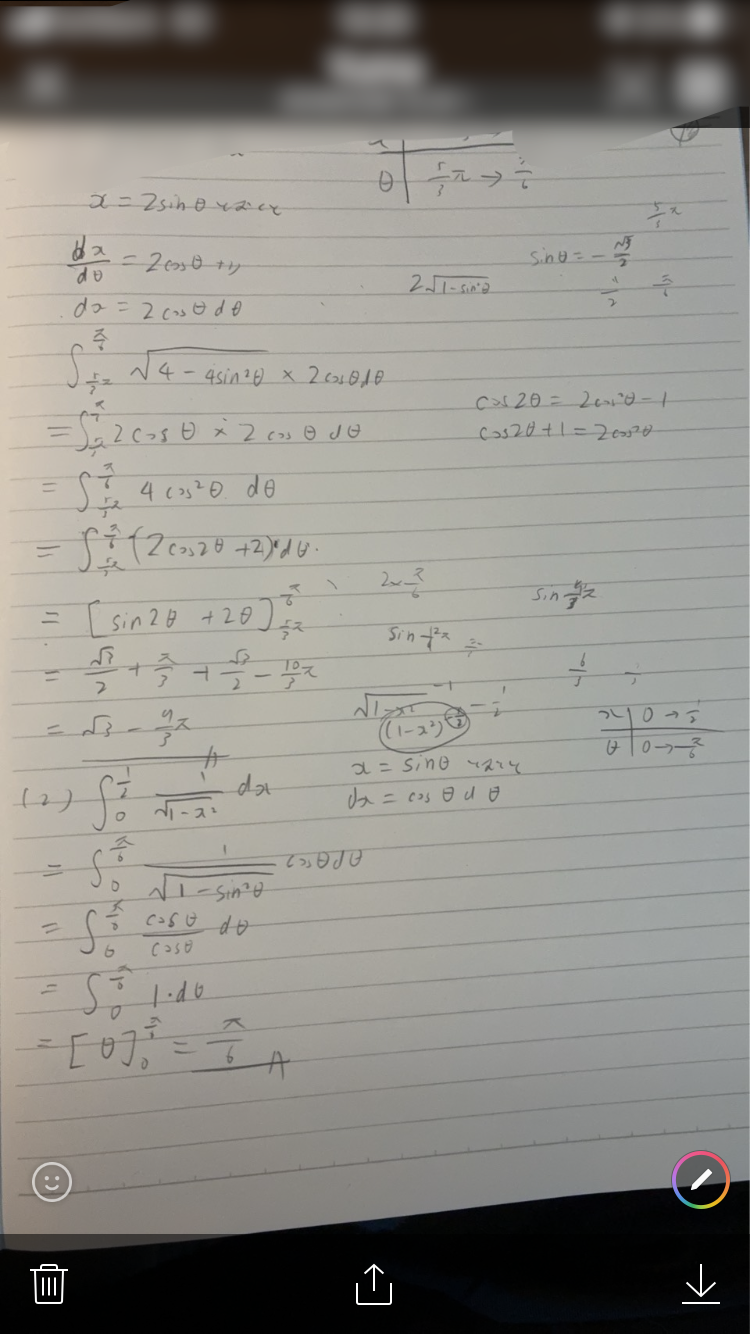 θ | 5/3 π → π/6
x = 2sinθ とおくと
5/3 π
dx/dθ = 2cosθ より
sinθ = - √3/2
2√1-sin²θ
1/2 π/6
dx = 2cosθdθ
∫_{5/3 π}^{π/6} √4-4sin²θ × 2cosθdθ
cos2θ = 2cos²θ-1
= ∫ 2cosθ × 2cosθ dθ
cos2θ+1 = 2cos²θ
= ∫_{5/3 π}^{π/6} 4cos²θ dθ
= ∫_{5/3 π}^{π/6} (2cos2θ+2) dθ
2×π/6
= [sin2θ + 2θ]_{5/3 π}^{π/6}
= √3/2 + π/3 + √3/2 - 10/3 π
= √3 - 9/3 π
√1-x²
(1-x²)
x | 0 → 1/2
θ | 0 → π/6
(2) ∫_0^{1/2} 1/√1-x² dx
x = sinθ とおくと
dx = cosθdθ
= ∫_0^{π/6} 1/√1-sin²θ cosθdθ
= ∫_0^{π/6} cosθ/cosθ dθ
= ∫_0^{π/6} 1・dθ
= [θ]_0^{π/6} = π/6